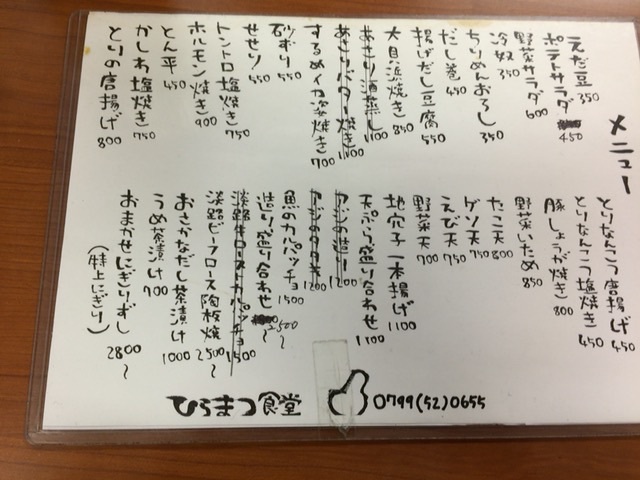 メニュー
えだ豆 350
ポテトサラダ 450
野菜サラダ 600
冷奴 350
ちりめんおろし 350
だし巻 450
揚げだし豆腐 550
大貝浜焼き 850
あさり酒蒸し 1100
あさりバター焼き 1100
するめイカ姿焼き 700
砂ずり 550
せせり 550
トントロ塩焼き 750
ホルモン焼き 900
とん平 450
かしわ塩焼き 750
とりの唐揚げ 800
とりなんこつ唐揚げ 450
とりなんこつ塩焼き 450
豚しょうが焼き 800
野菜いため 850
たこ天 800
ゲソ天 750
えび天 750
野菜天 700
地穴子一本揚げ 1100
天ぷら盛り合わせ 1100
アジの造り 1200
アジのタタキ 1200
魚のカルパッチョ 1500
造り盛り合わせ 2500〜
淡路牛ローストカルパッチョ 1500
淡路ビーフロース陶板焼 2500〜
おさかなだし茶漬け 1000
うめ茶漬け 700
おまかせにぎりずし 2800〜
(特上にぎり)
ひらまつ食堂 0799(52)0655